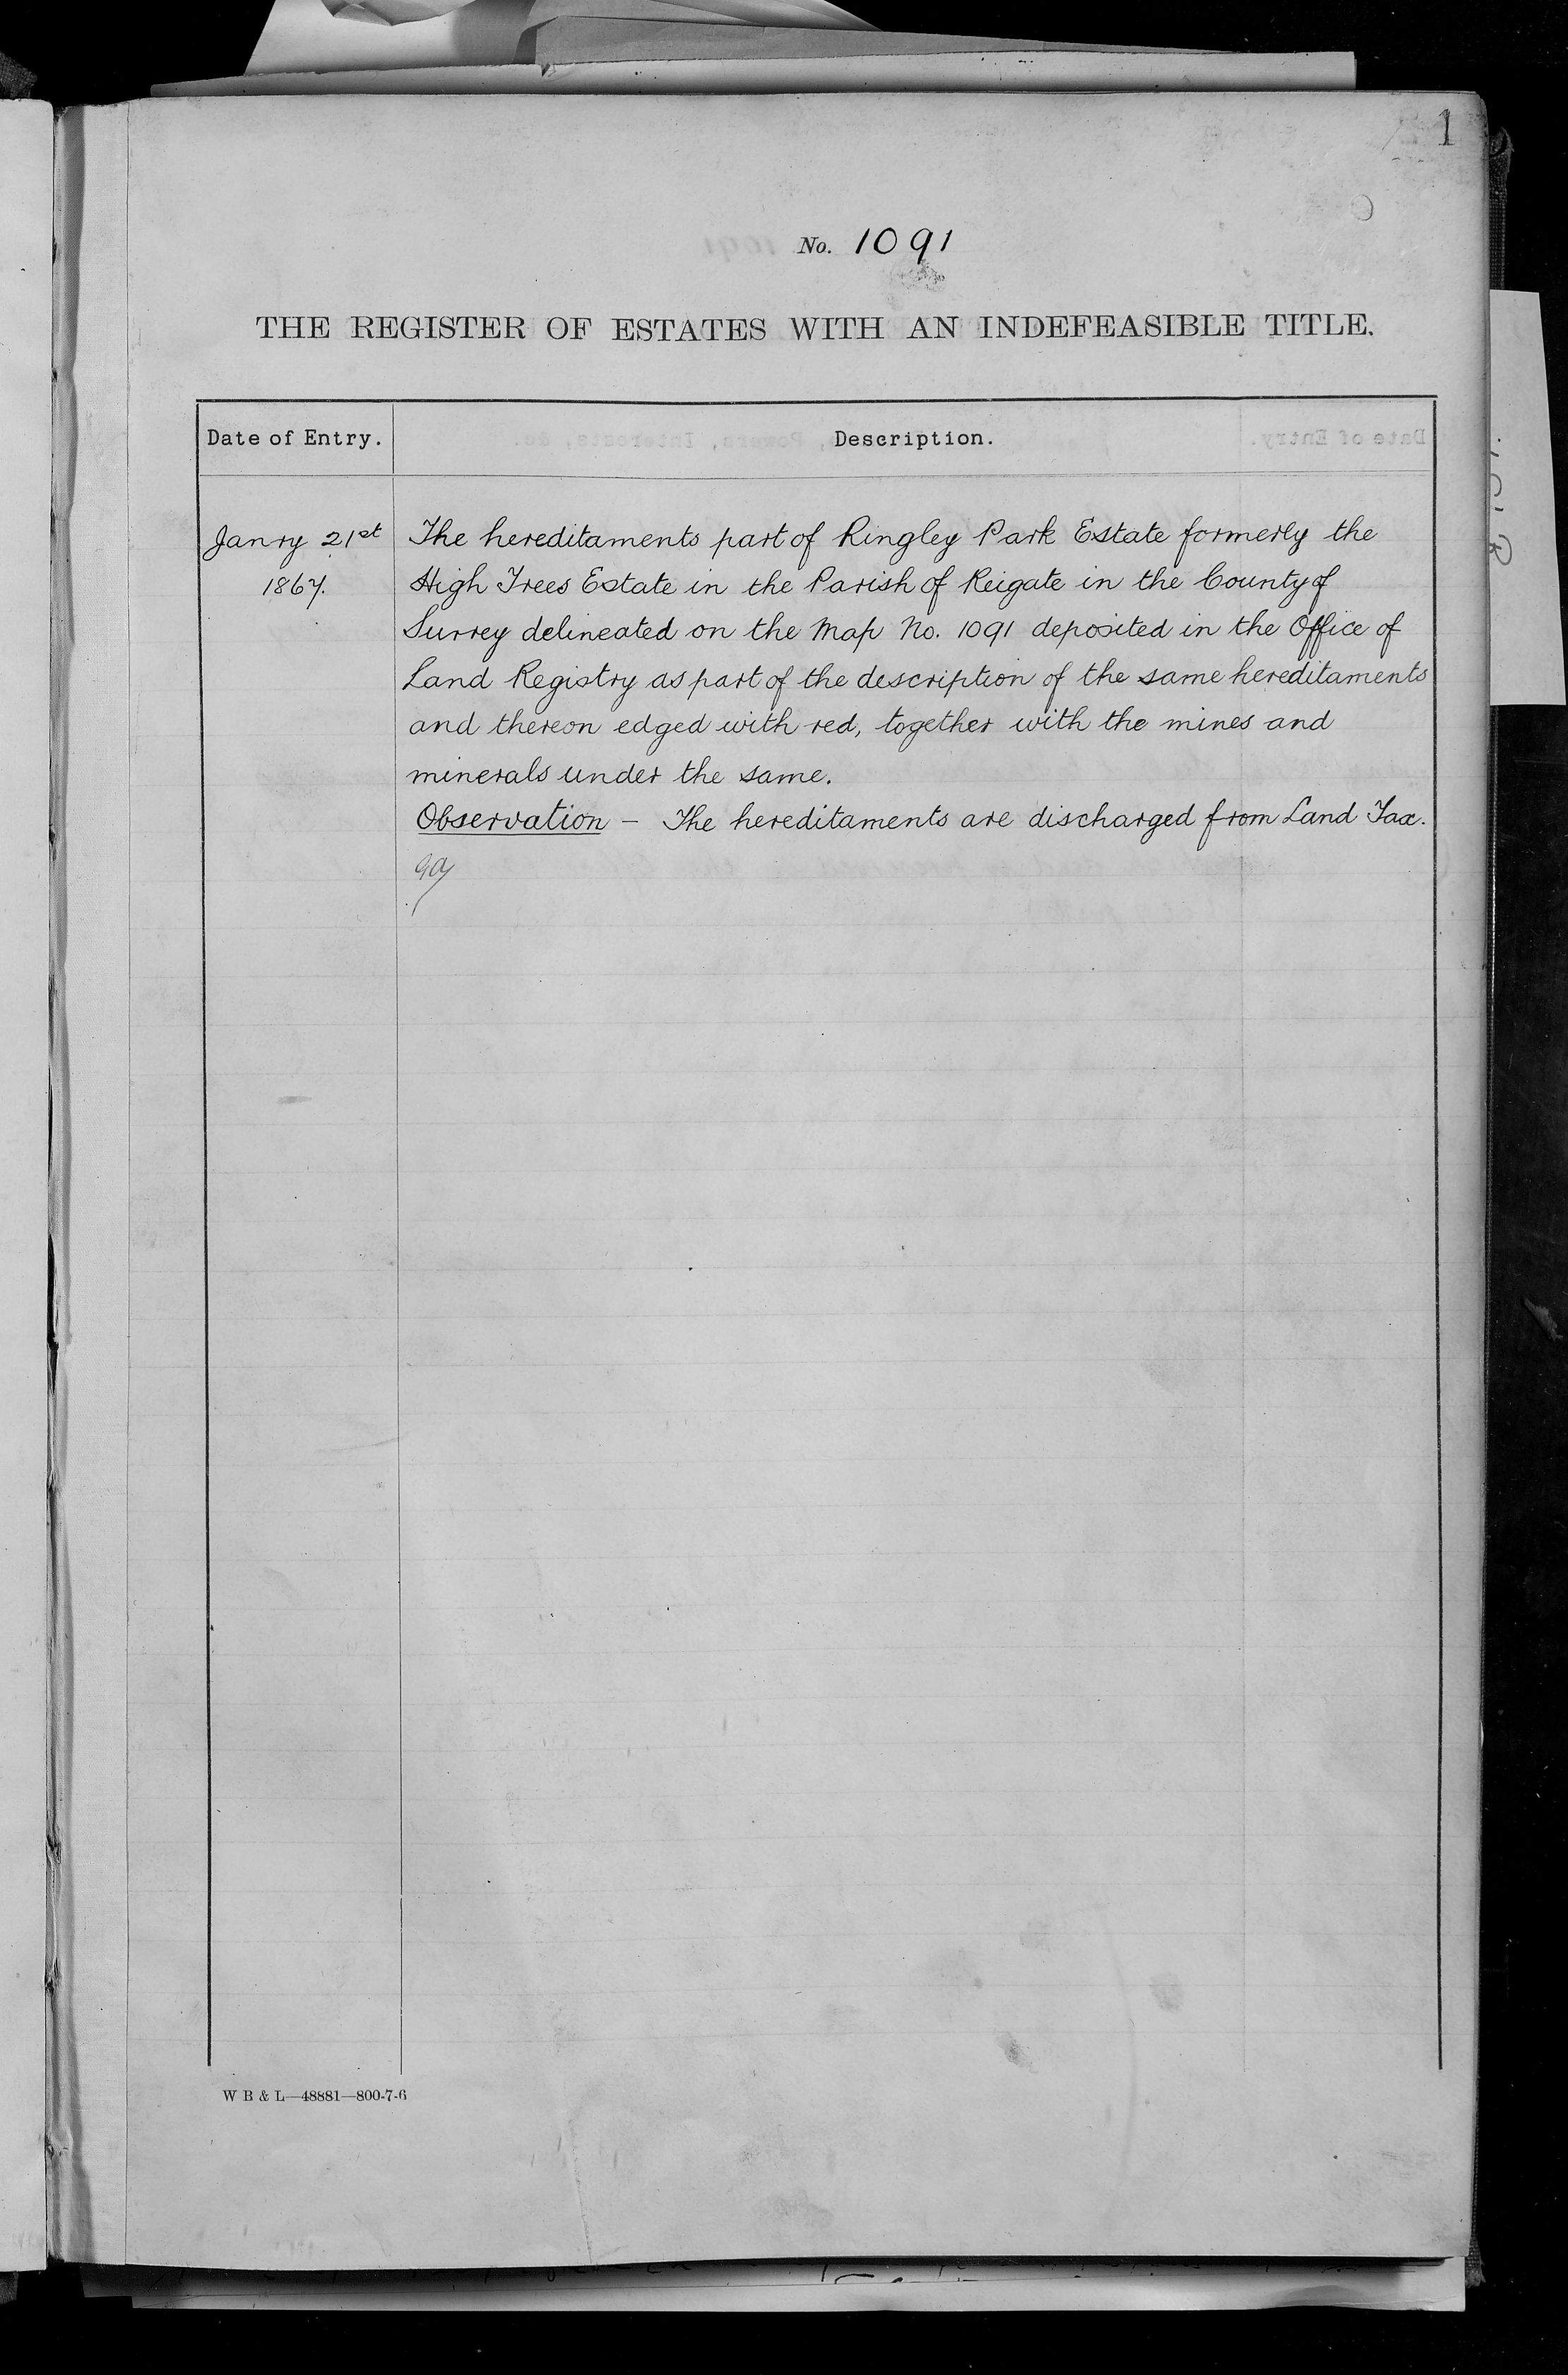 1
No. 1091
THE REGISTER OF ESTATES WITH AN INDEFEASIBLE TITLE.
Date of Entry.
Description.
Janry 21st
1867.
The hereditaments part of Ringley Park Estate formerly the
High Trees Estate in the Parish of Reigate in the County of
Surrey delineated on the Map No. 1091 deposited in the Office of
Land Registry as part of the description of the same hereditaments
and thereon edged with red, together with the mines and
minerals under the same.
Observation – The hereditaments are discharged from Land Tax.
W B & L—48881—800-7-6